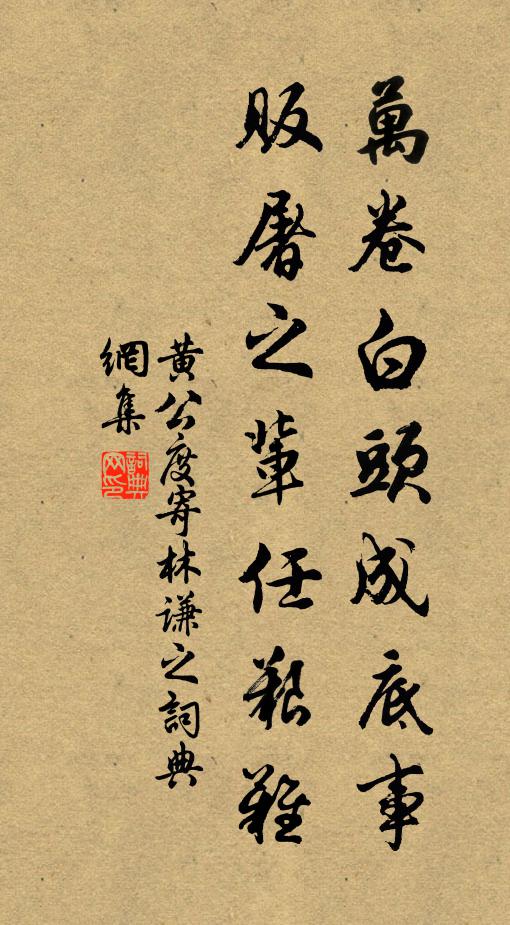 萬卷白頭成底事
販屠之輩任艱難
黃公度寄林謙之詞典
網集
詞典
网印